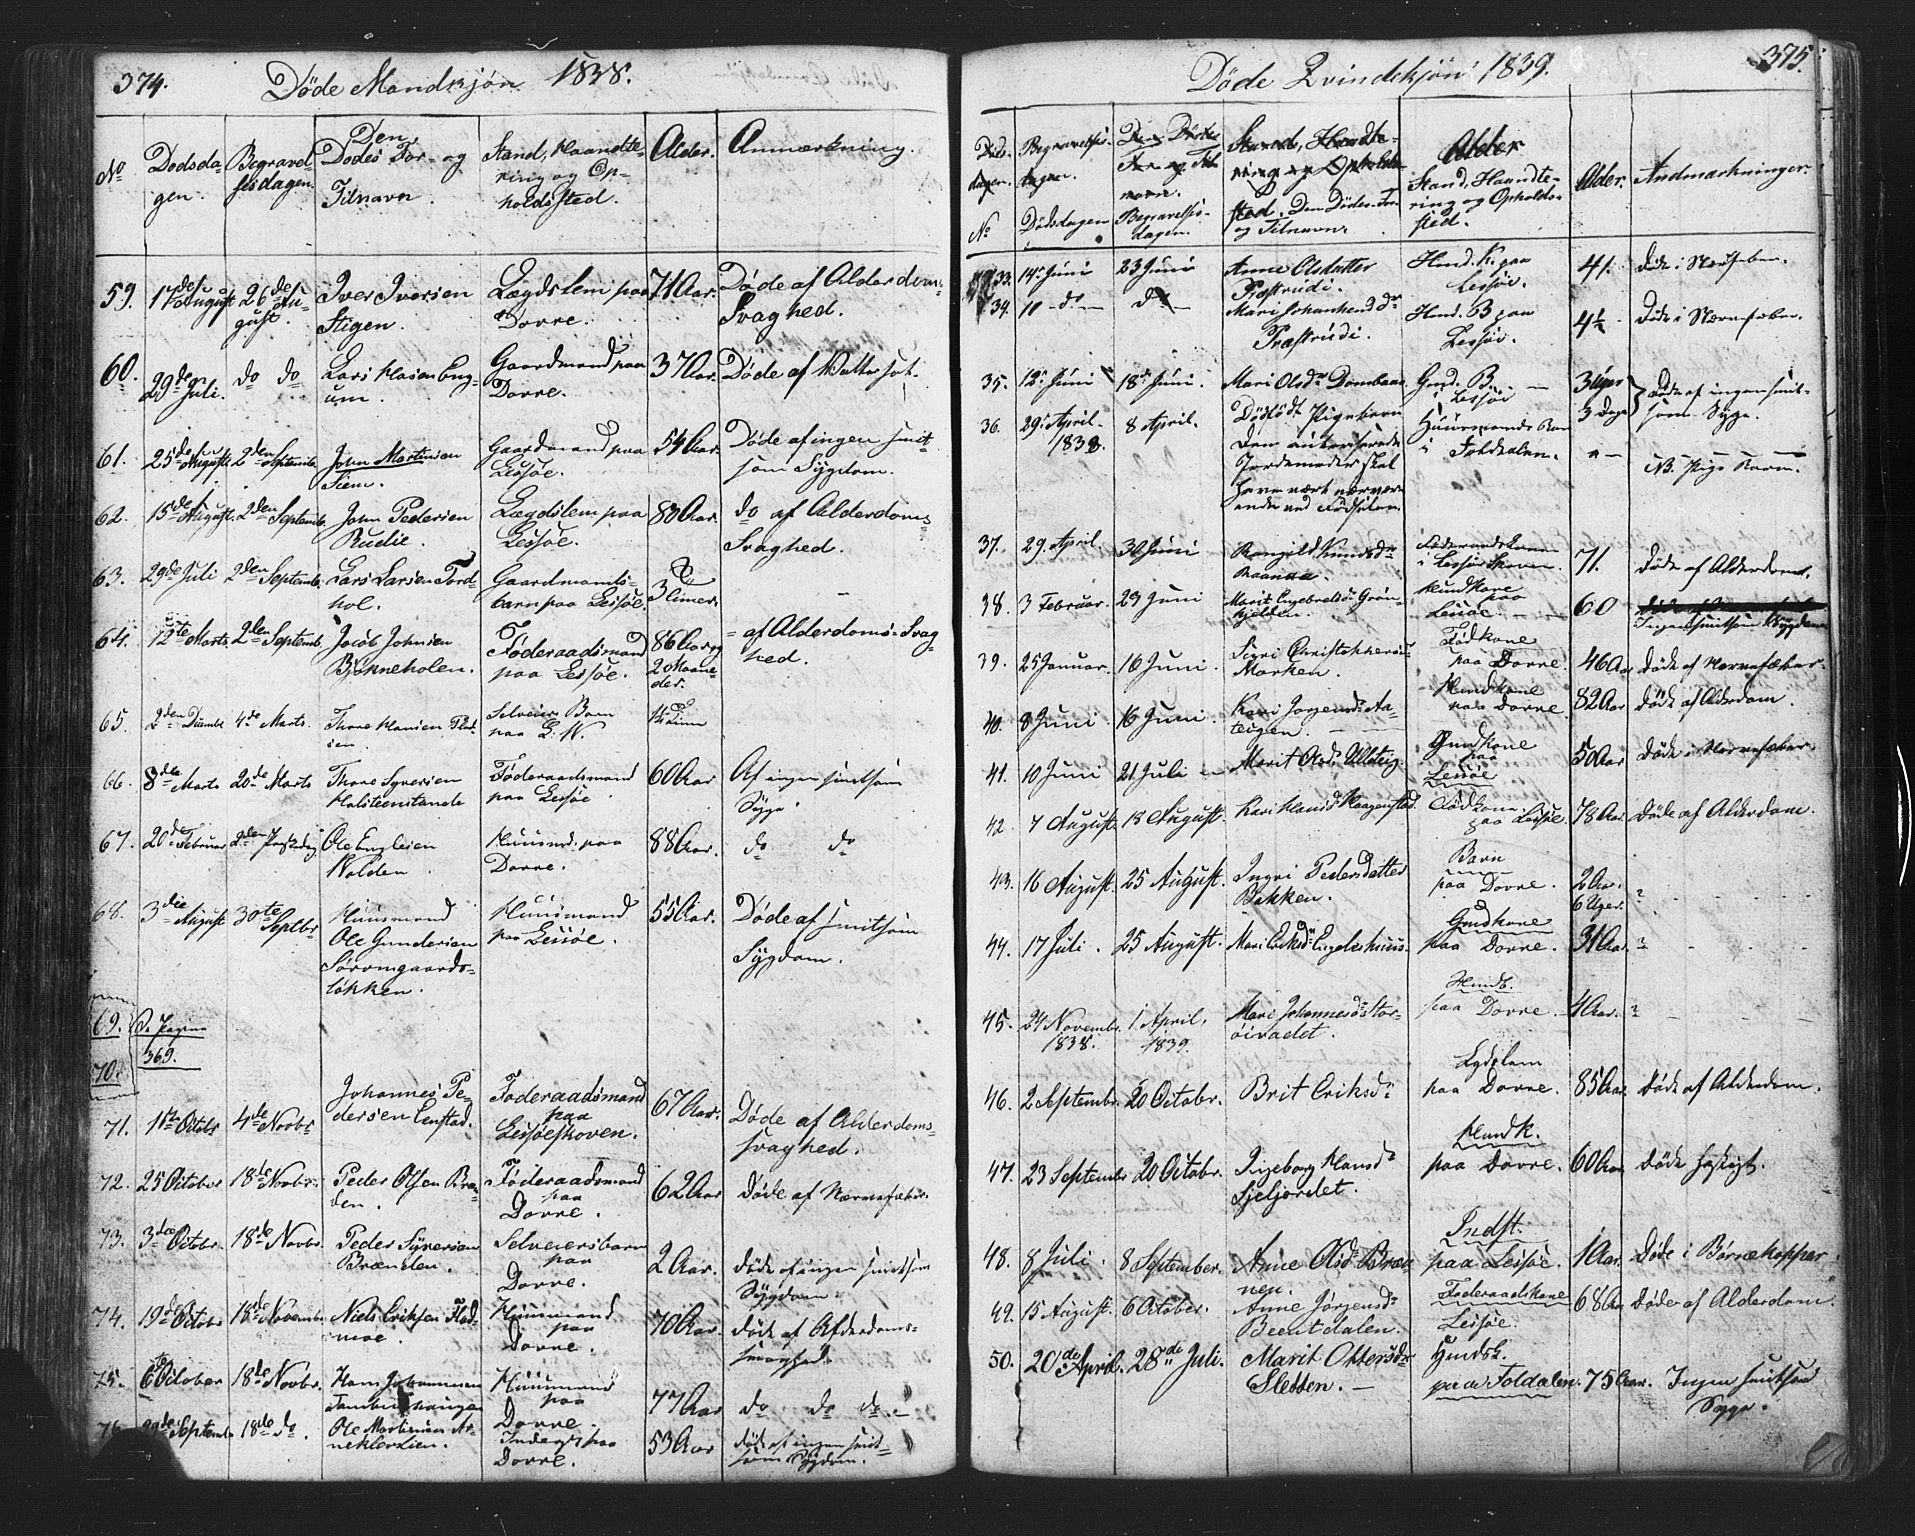 374.
Døde Mandkjøn 1838.
No
Dødsda-
gen.
Begravel-
sesdagen.
Den
Dødes For- og
Tilnavn
Stand, Haandte-
ring og Op-
holdssted.
Alder.
Anmærkning.
59. 17de August 26de Au-
gust.
Iver Iversen
Stigen.
Lægdslem paa
Dovre.
71 Aar.
Døde af Alderdoms
Svaghed.
60. 29de Juli. do do
Lars
um.
Gaardmand paa
Dovre.
37 Aar.
Døde af Vattersot.
61. 25de August 2den Septemb.
John Mortensen
Siem.
Gaardmand paa
Lessøe.
54 Aar.
Døde af ingen smit-
som Sygdom.
62. 15de August. 2den Septemb.
John Pedersen
Rudie.
Lægdslem paa
Lessøe.
80 Aar.
do af Alderdoms
Svaghed.
63. 29de Juli 2den Septemb.
Lars Larsen Tord-
hol.
Gaardmands-
barn paa Lessøe.
3 Timer.
64. 12te Marts 2den Septemb.
Jacob Johnsen
Bjønneholen.
Føderaadsmand
paa Lessøe.
86 Aar og
2 Maane-
der.
= af Alderdoms-Svag-
hed.
65. 2den 4de Marts.
Thore Hansen
Selveier Barn
paa L. W.
66. 8de Marts 20de Marts
Thore Syversen
Føderaadsmand
paa Lessøe.
60 Aar
Af ingen smitsom
Syge.
67. 20de Februar 2den Paaskedag
Ole Englesen
Volden
Huusmd. paa
Dovre.
88 Aar.
do do
68. 3die August 30te Septbr
Huusmand
Ole Gundersen
Sørumgaards-
løkken.
Huusmand
paa Lessøe.
55 Aar.
Døde af smitsom
Sygdom.
69. Se Pagina
369.
70.
71. 11te Octobr 4de Novbr
Johannes Pe-
dersen Enstad.
Føderaadsmand
paa
Lessøeskoven.
67 Aar.
Døde af Alderdoms-
svaghed.
72. 25 October 18de Novbr.
Peder Olsen Bræn-
den.
Føderaadsmand
paa
Dovre.
62 Aar
Døde af Nervefeber.
73. 3die Octobr. 18de Novbr.
Peder Syversen
Brænden.
Selveiersbarn
paa
Dovre.
2 Aar.
Døde af ingen smitsom
Sygdom.
74. 19de Octobr 18de Novembr
Niels Eriksen
moe.
Huusmand
paa
Dovre.
70 Aar.
Døde af Alderdoms-
svaghed.
75. 6te October 18de Novbr.
Hans Johannesen
Huusmand
paa
Dovre.
77 Aar
do do do.
76. 29de Septemb. 18de do.
Ole Mortensen
Inderst paa
Dovre.
53 Aar
Døde af ingen smit-
som Sygdom.
375.
Døde Qvindekjøn 1839.
Døds-
dagen.
Begravelses-
dagen.
Den Dødes
For og Til-
navn.
Stand, Haandte-
ring og Opholds-
sted.
Alder
No
Dødsdagen
Begravelses-
dagen.
Den Dødes For-
og Tilnavn.
Stand, Haandte-
ring og Opholds-
sted.
Alder.
Andmærkninger.
33. 14. Juni 23 Juni
Anne Olsdatter
Præstrudi.
Hmd. K. paa
Lessøe.
41.
Døde i Nervefeber.
34. 11 - do - do -
Mari Johannesd.
Præstrudi.
Hmd. B paa
Lessøe.
4½
Døde i Nervefeber.
35. 12. Juni 18. Juni.
Mari Olsdr Dombaas
Gmd. B. -
i Lessøe
3 Uger
3 Dage
Døde af ingen smit-
som Syge.
36. 29. April.
1838. 8 April.
Dødfødt Pigebarn
Den
Jordemoder skal
have vært nærvær-
ende ved Fødselen.
Huusmands Barn
i Foldalen.
NB. Pige Barn.
37. 29. April. 30 Juni
Rangild Knudsdr
Raanaa.
Føderaadskone
i Lessøe Skoven.
71.
Døde af Alderdom.
38. 3 Februar. 23 Juni
Marit Engebretsdr
Huuskone
paa
Lessøe.
60
Ingen smitsom Sygdom
39. 25 Januar. 16 Juni.
Sigri Christophersdr
Morken.
Fødkone
paa Dovre.
46 Aar
Døde af Nervefeber.
40. 8 Juni 16 Juni.
Kari Jørgensdr
Huuskone
paa Dovre.
82 Aar
Døde af Alderdom.
41. 10 Juni 21 Juli
Marit Olsdr Ullsteig
Gmdkone
paa
Lessøe
50 Aar
Døde i Nervefeber.
42. 7 August. 18 August.
Kari Hansdr Haagenstad.
Fødkone.
paa Lessøe.
78 Aar.
Døde af Alderdom.
43. 16 August. 25 August.
Ingri Pedersdatter
Bakken.
Barn
paa Dovre.
2 Aar.
6 Uger.
?
44. 17 Juli. 25 August.
Mari Eriksdr Engelshuus
Gmdkone
paa Dovre.
31 Aar.
?
45. 24 Novembr.
1838.
1 April.
1839.
Mari Johannesdr Stor-
øivadet.
Hmdb.
paa Dovre.
4 Aar.
?
46. 2 Septembr. 20 Octobr.
Brit Eriksdr
Lgdslem
paa Dovre.
85 Aar.
Døde af Alderdom.
47. 23 Septembr 20 Octobr.
Ingeborg Hansdr
Sjeljordet.
Hmdk.
paa Dovre.
60 Aar
Døde hastigt.
48. 8 Juli. 8 September.
Anne Olsdr Bræn-
nen.
Indst.
paa Lessøe.
1 Aar.
Døde i Børnekopper
49. 15 August. 6 October.
Anne Jørgensdr
Beentdalen.
Føderaadskone
Lessøe.
68 Aar
Døde af Alderdom.
50. 20de April. 28de Juli.
Marit Ottersdr
Sletten. -
Hmdsk.
paa Foldalen.
75 Aar.
Ingen smitsom
Syge.